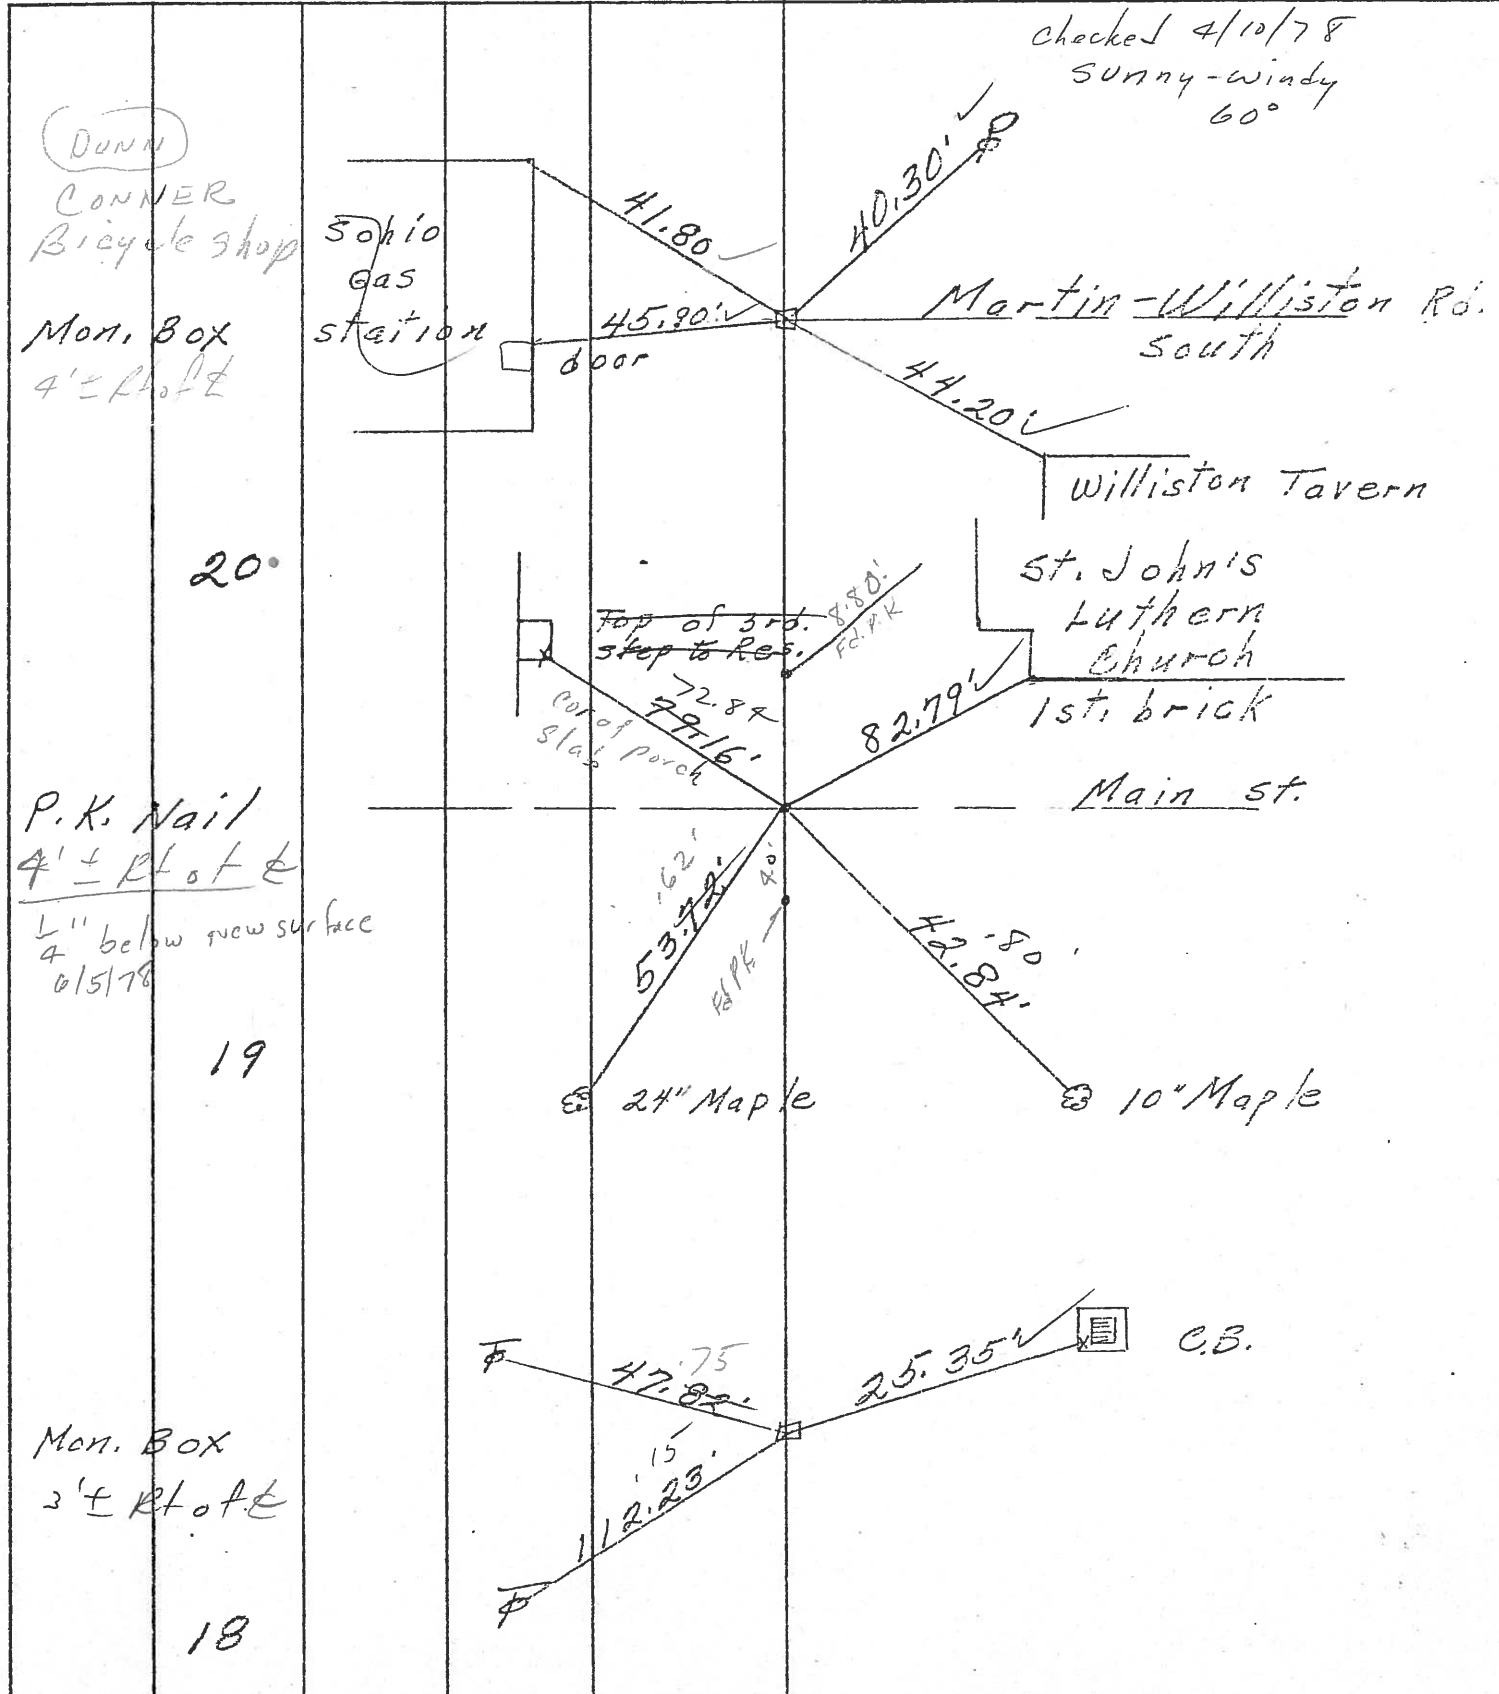 checked 4/10/78
sunny-windy
60°
DUNN
CONNER
Bicycle shop
Sohio
Gas
station
41.80
40.30'
Mon. Box
4' ± Rt of ℄
45.90'
door
Martin-Williston Rd.
South
44.20'
Williston Tavern
20
St. John's
Luthern
Church
1st. brick
Top of 3rd.
step to Res.
8.80'
Fd. P.K
72.84
79.16'
Cor of
Slab porch
82.79'
P.K. Nail
4' ± Rt of ℄
1/4" below new surface
6/5/78
Main st.
.62'
53.72'
40'
Fd PK
.80
42.84'
19
24" Maple
10" Maple
.75
47.82'
25.35'
C.B.
Mon. Box
3' ± Rt of ℄
.15
112.23'
18